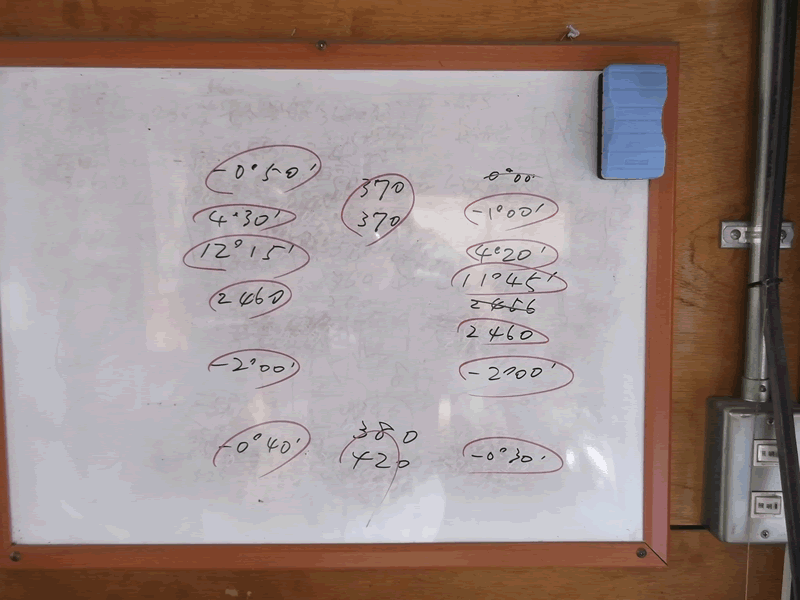 -0°50'
4°30'
12°15'
2460
-2°00'
-0°40'
370
370
380
420
0°00'
-1°00'
4°20'
11°45'
2466
2460
-2°00'
-0°30'